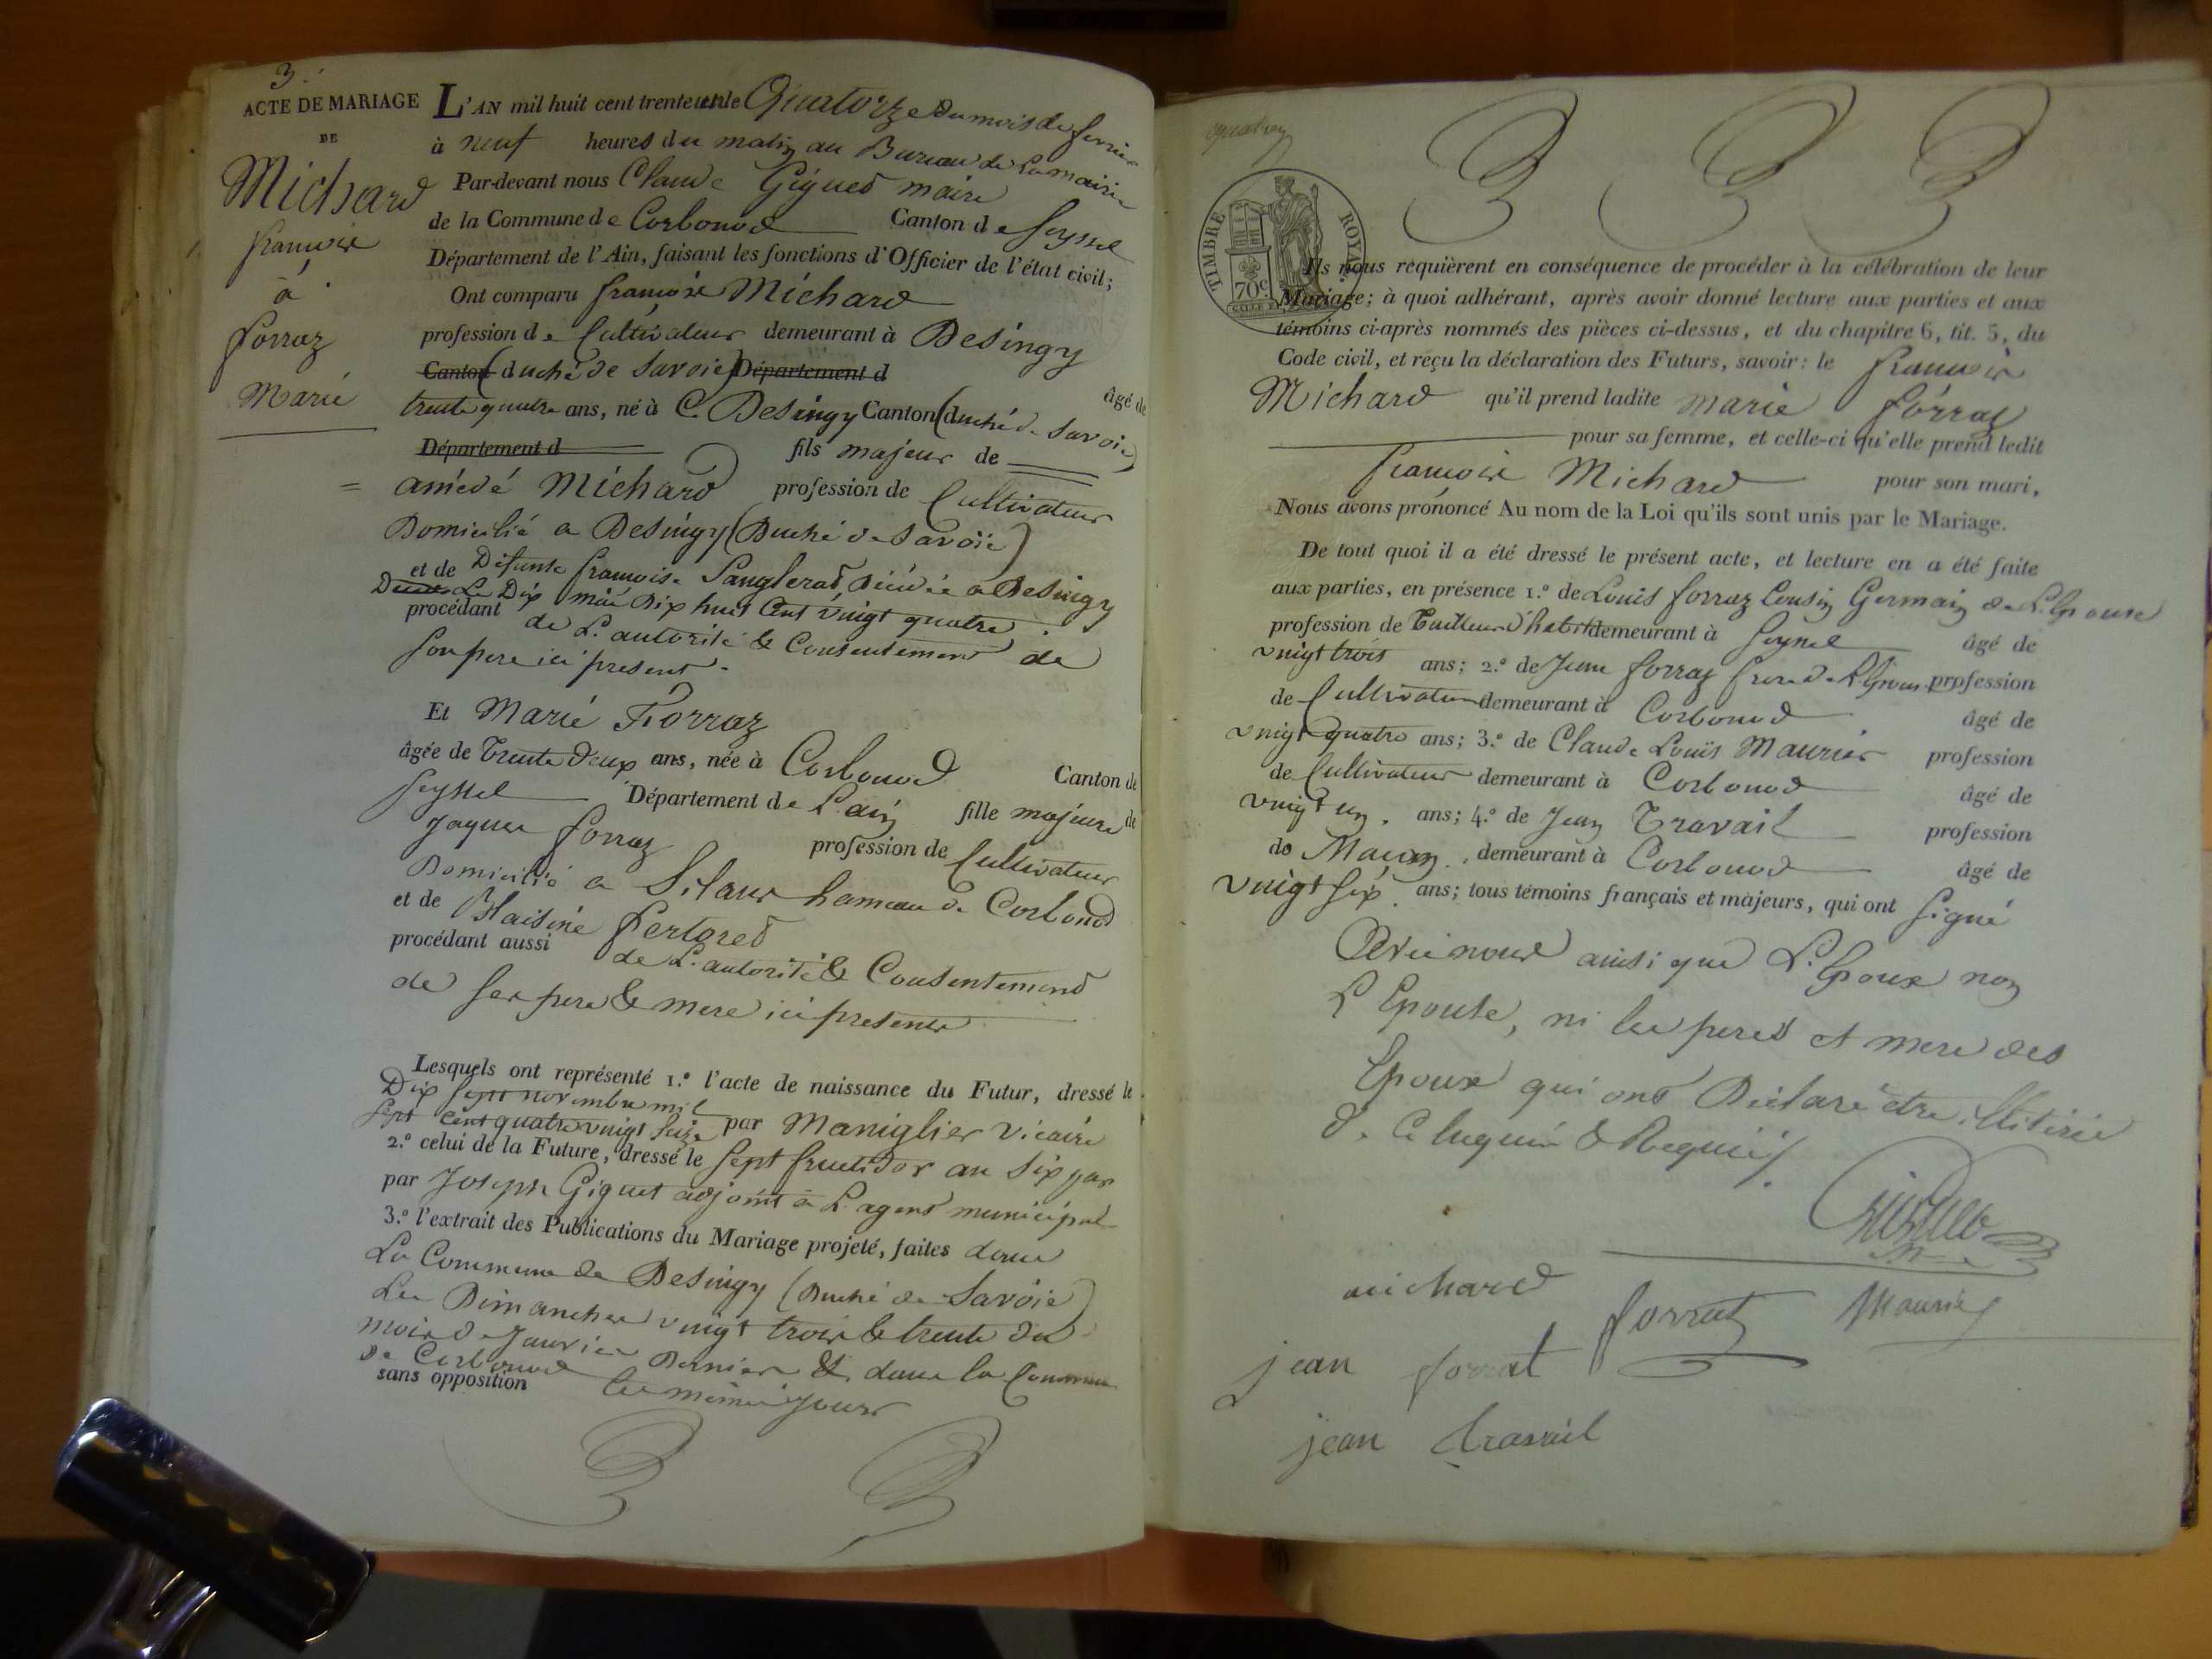 3.
ACTE DE MARIAGE
DE
Michard
francois
à
forraz
Marie
L'AN mil huit cent trente un le Quatorze du mois de fevrier
à neuf heures du matin au Bureau de La mairie
Par-devant nous Claude Gigues maire
de la Commune de Corbonod Canton de Seyssel
Département de l'Ain, faisant les fonctions d'Officier de l'état civil;
Ont comparu francois Michard
profession de Cultivateur demeurant à Desingy
Canton (duché de Savoie) Département d
âgé de
trente quatre ans, né à Desingy Canton (duché de Savoie)
Département d fils majeur de
= amédé Michard profession de Cultivateur
Domicilié a Desingy (Duché de Savoie)
et de Defunte francoise Sanglerat Décédée a Desingy
Le Dix mai Dix huit Cent vingt quatre
procédant de L'autorité & Consentement de
Son pere ici present.
Et Marie Forraz
âgée de Trente deux ans, née à Corbonod Canton de
Seyssel Département de L'ain fille majeure de
Jaques forraz profession de Cultivateur
Domicilié a Silans hameau de Corbonod
et de Blaisine Pertoret
procédant aussi de L'autorité & Consentement
de Ses pere & mere ici presents
Lesquels ont représenté 1.º l'acte de naissance du Futur, dressé le
Dix Sept novembre mil
Sept Cent quatre vingt Seize par Maniglier vicaire
2.º celui de la Future, dressé le Sept fructidor an Six par
par Joseph Giguet adjoint à L'agent municipal
3.º l'extrait des Publications du Mariage projeté, faites dans
La Commune de Desingy (Duché de Savoie)
Les Dimanches vingt trois & trente du
mois de Janvier Dernier & dans la Commune
de Corbonod les mêmes jours
sans opposition
TIMBRE ROYAL
70 c
Ils nous requièrent en conséquence de procéder à la célébration de leur
Mariage; à quoi adhérant, après avoir donné lecture aux parties et aux
témoins ci-après nommés des pièces ci-dessus, et du chapitre 6, tit. 5, du
Code civil, et reçu la déclaration des Futurs, savoir: le francois
Michard qu'il prend ladite marie forraz
pour sa femme, et celle-ci qu'elle prend ledit
francois Michard pour son mari,
Nous avons prononcé Au nom de la Loi qu'ils sont unis par le Mariage.
De tout quoi il a été dressé le présent acte, et lecture en a été faite
aux parties, en présence 1.º de Louis forraz Cousin Germain de L'Epouse
profession de Tailleur d'habits demeurant à Seyssel âgé de
vingt trois ans; 2.º de Jean forraz frere de L'Epouse profession
de Cultivateur demeurant à Corbonod âgé de
vingt quatre ans; 3.º de Claude Louis Maurier profession
de Cultivateur demeurant à Corbonod âgé de
vingt un. ans; 4.º de Jean Travail profession
de Maçon, demeurant à Corbonod âgé de
vingt Six. ans; tous témoins français et majeurs, qui ont Signé
Avec nous ainsi que L'Epoux non
L'Epouse, ni les peres et mere des
Epoux qui ont Déclaré être illitirés
de ce Enquis & Requis/.
michard
forrat
Maurier
jean forrat
jean travail